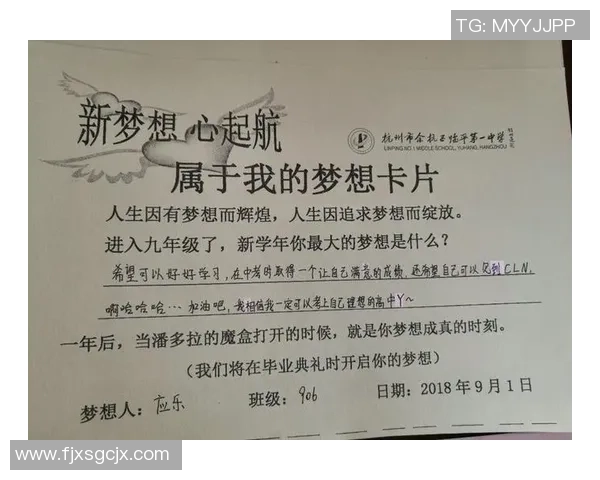 TG: MYYJJPP
新梦想 心起航
杭州市余杭区临平第一中学
LINPING NO.1 MIDDLE SCHOOL, YUHANG, HANGZHOU
属于我的梦想卡片
人生因有梦想而辉煌，人生因追求梦想而绽放。
进入九年级了，新学年你最大的梦想是什么？
希望可以好好学习，在中考时取得一个让自己满意的成绩，还希望自己可以见到CLN，
啊哈哈哈…加油吧，我相信我一定可以考上自己理想的高中Y~
一年后，当潘多拉的魔盒打开的时候，就是你梦想成真的时刻。
（我们将在毕业典礼时开启你的梦想）
梦想人：应乐 班级：906 日期：2018年9月1日
www.fjxsgcjx.com